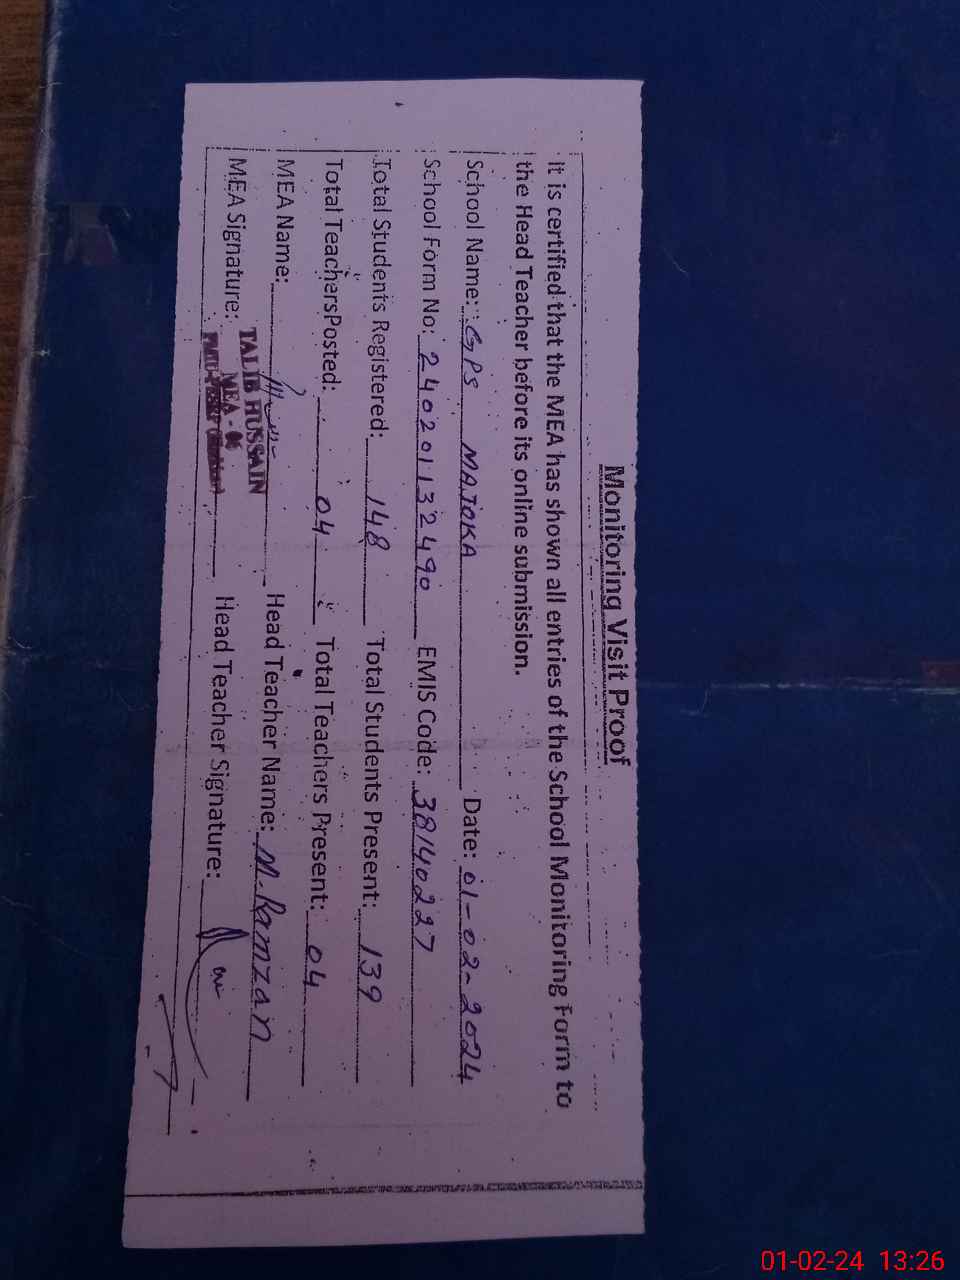 Monitoring Visit Proof
It is certified that the MEA has shown all entries of the School Monitoring Form to
the Head Teacher before its online submission.
School Name: GPS MAJOKA Date: 01-02-2024
School Form No: 240201132490 EMIS Code: 38140227
Total Students Registered: 148 Total Students Present: 139
Total TeachersPosted: 04 Total Teachers Present: 04
MEA Name: Head Teacher Name: M. Ramzan
MEA Signature: Head Teacher Signature:
TALIB HUSSAIN
MEA -
01-02-24 13:26